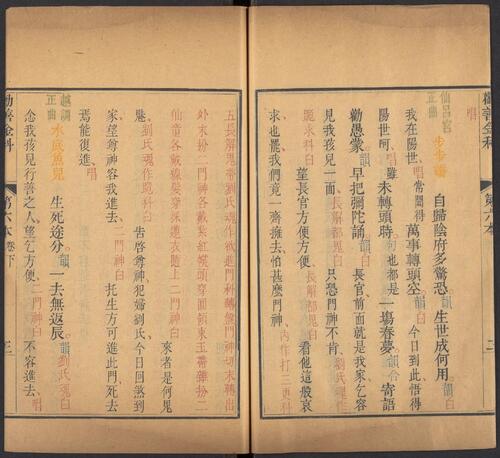 勸善金科 第六本
唱 仙呂宮正曲 步步嬌 自歸陰府多驚恐韻生世成何用韻白
我在陽世唱常聞得萬事轉頭空韻白今日到此悟得
陽世呵唱雖未轉頭時句也都是一場春夢韻合寄語
勸愚蒙韻早把彌陀誦韻白長官前面就是我家乞容
我見孩兒一面長解都鬼白只恐門神不肯劉氏魂作
跪求科白望長官方便方便長解都鬼白看他這般哀
求也罷我們竟一齊擁去怕甚麼門神內作打三更科
五長解鬼帶劉氏魂作欲進門科轉
外末扮二門神各戴紅幞頭穿圓領束玉帶
仙童各戴線髮穿採蓮衣隨上二門神白來者是何鬼
魅劉氏魂作跪科白告啓尊神犯婦劉氏今日回煞到
家望尊神容我進去二門神白托生方可進此門死去
焉能復進唱
越調正曲 水底魚兒 生死途分韻一去無返辰韻劉氏魂白
念我孩兒行善之人望乞方便二門神白不容進去唱
勸善金科 第六本卷下 三